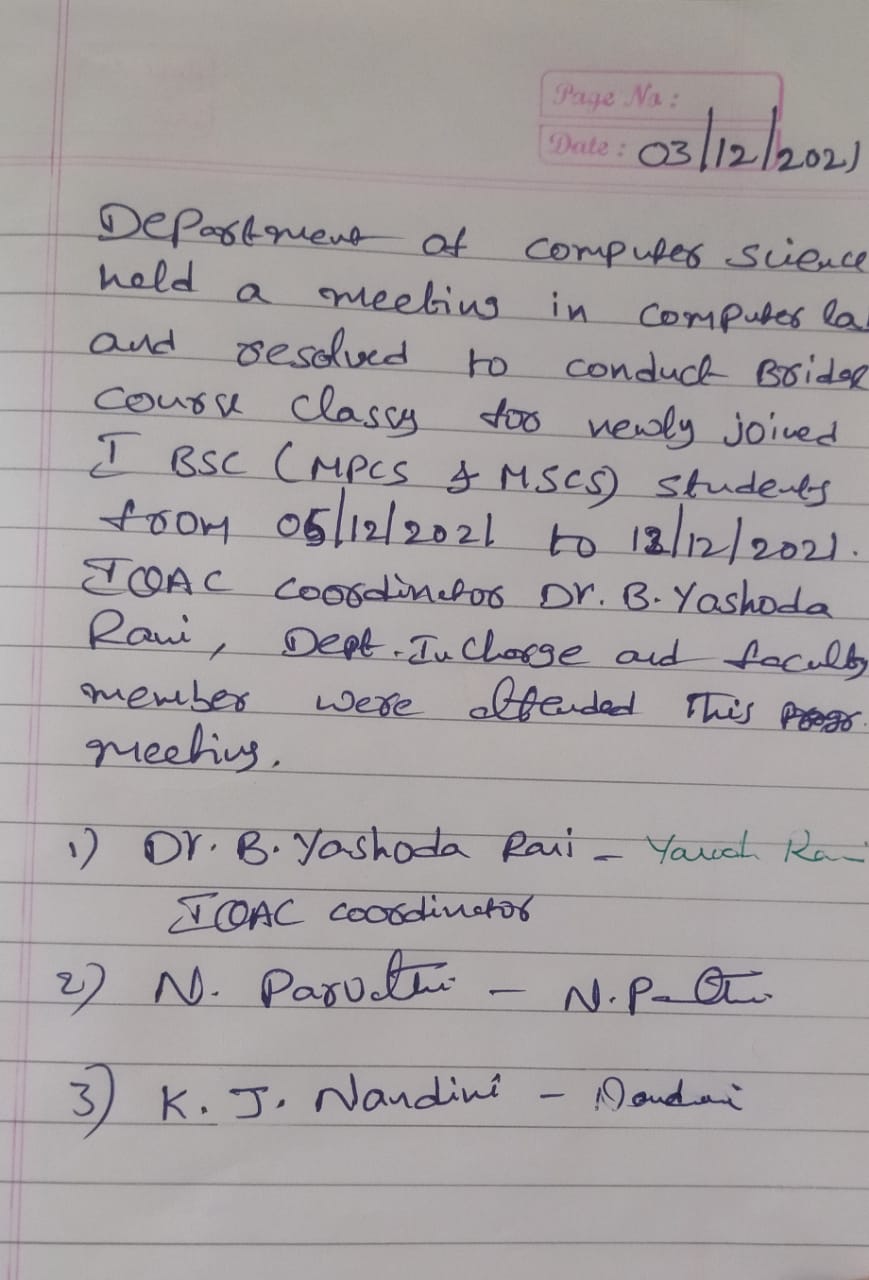 Page No:
Date: 03/12/2021
Department of computer science
held a meeting in computer la
and resolved to conduct Bridge
course classy for newly joined
I BSC (MPCS & MSCS) students
from 06/12/2021 to 12/12/2021.
IQAC coordinator Dr. B. Yashoda
Rani, Dept. In charge and faculty
member were attended This
meeting.
1) Dr. B. Yashoda Rani -
IQAC coordinator
2) N. Parvathi - N. P
3) K. J. Nandini - Nandini